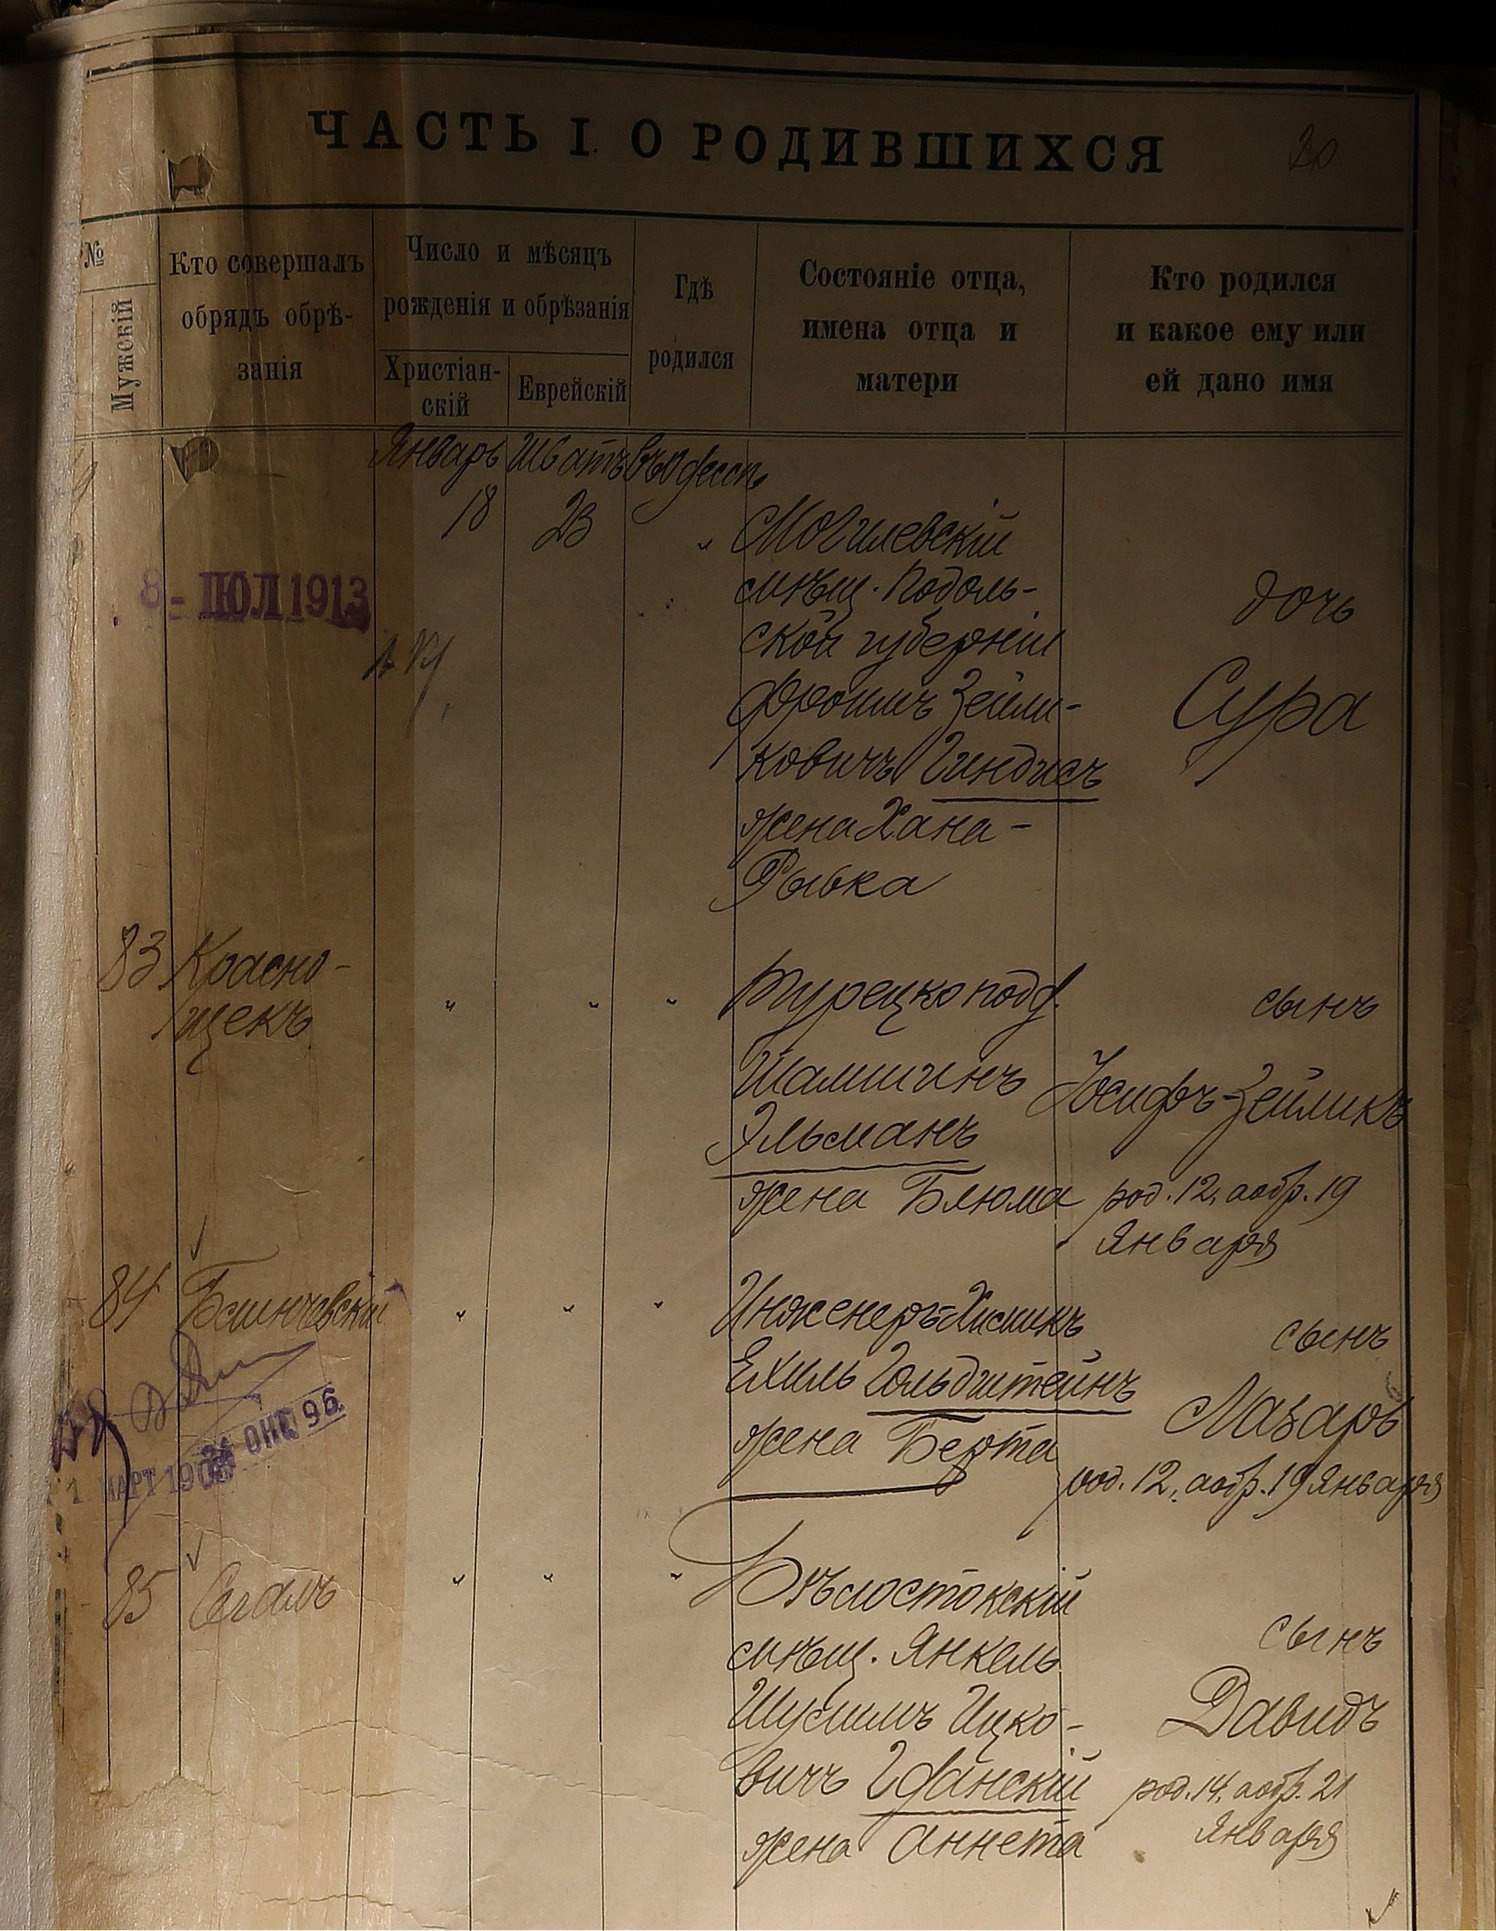 ЧАСТЬ I. О РОДИВШИХСЯ
20
№
Мужскій
Кто совершалъ
обрядъ обрѣ-
занія
Число и мѣсяцъ
рожденія и обрѣзанія
Христіан-
скій
Еврейскій
Гдѣ
родился
Состояніе отца,
имена отца и
матери
Кто родился
и какое ему или
ей дано имя
Январь Шватъ въ Одессѣ
18 23 " Могилевскій
мѣщ. Подоль-
ской губерніи
Фроимъ Зейли-
ковичъ Гиндисъ
жена Хана-
Рывка
дочь
Сура
8 - ІЮЛ 1913
83 Красно-
щекъ
" " " Турецкоподд.
Шамшинъ
Эльманъ
жена Блюма
сынъ
Іосифъ-Зейликъ
род. 12, а обр. 19
Января
84
" " " Инженеръ-Химикъ
Ехиль Гольдштейнъ
жена Берта
сынъ
Лазарь
род. 12, а обр. 19 Января
1 МАРТ
85 Сегалъ
" " " Бѣлостокскій
мѣщ. Янкель
Шулимъ Ицко-
вичъ Гданскій
жена Аннета
сынъ
Давидъ
род. 14, а обр. 21
Января